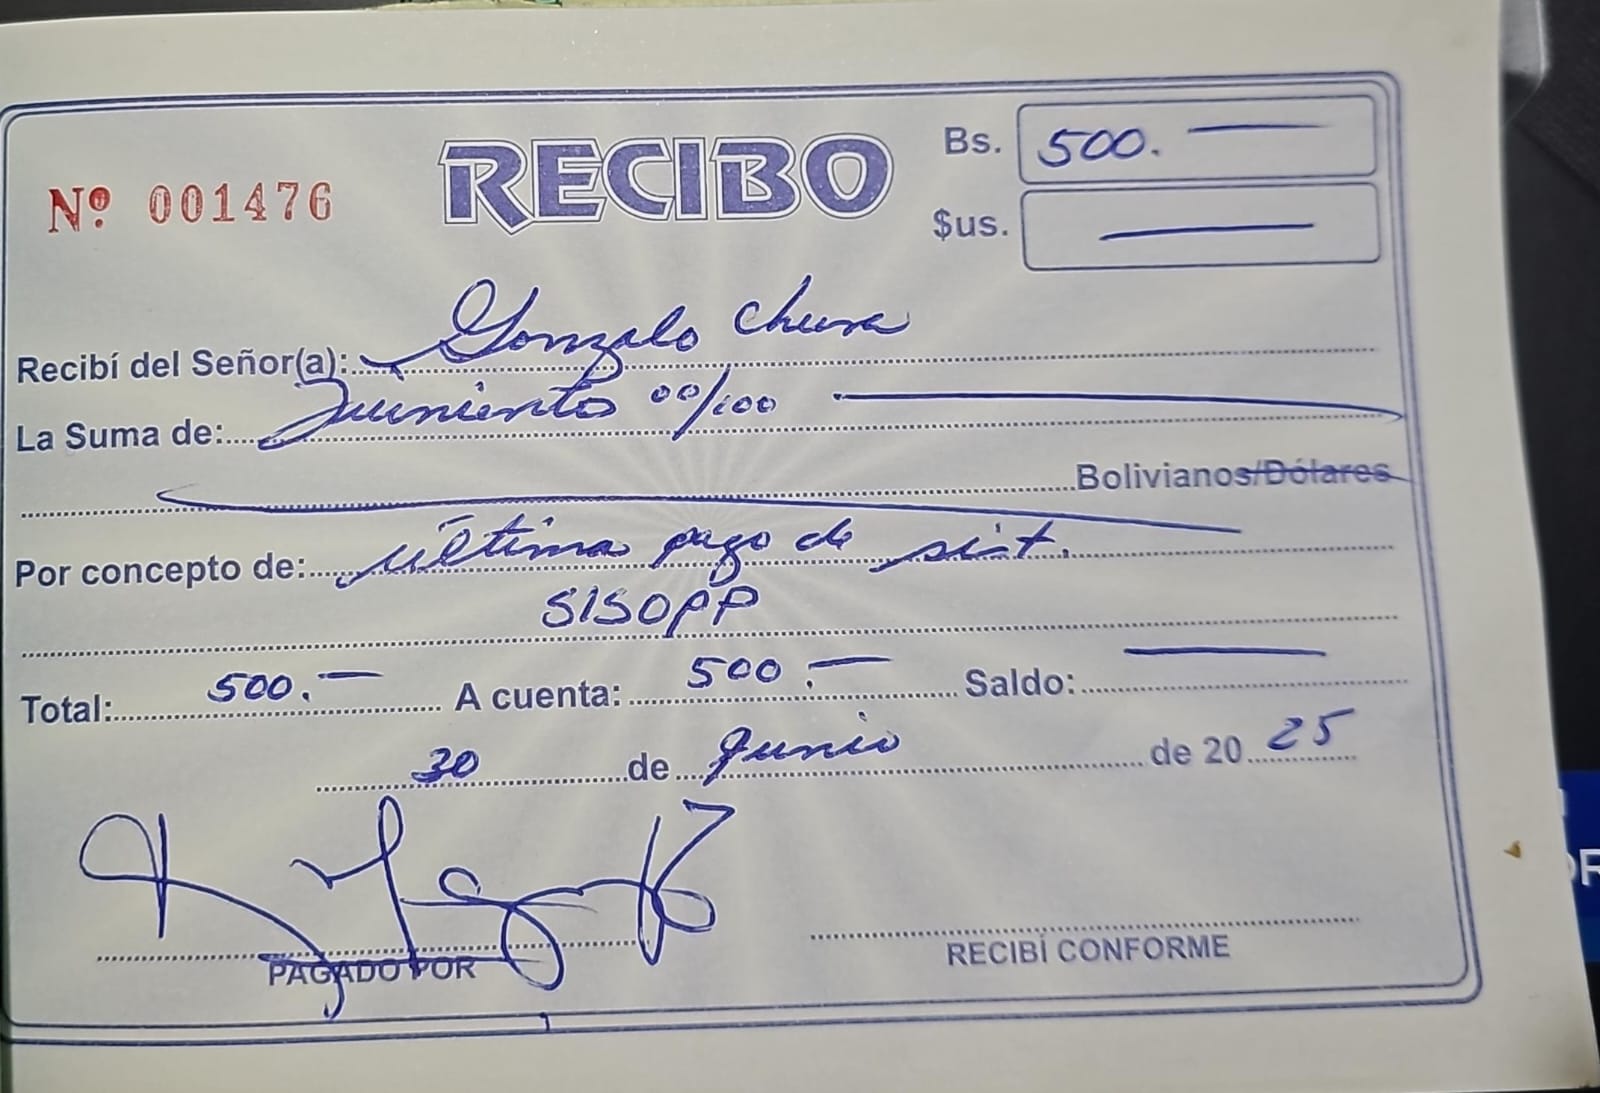 Nº 001476
RECIBO
Bs. 500.—
$us. —
Recibí del Señor(a): Gonzalo Chura
La Suma de: Quiniento 00/100
Bolivianos/Dólares
Por concepto de: última pago de sist.
SISOPP
Total: 500.— A cuenta: 500.— Saldo: —
30 de Junio de 20 25
PAGADO POR
RECIBÍ CONFORME